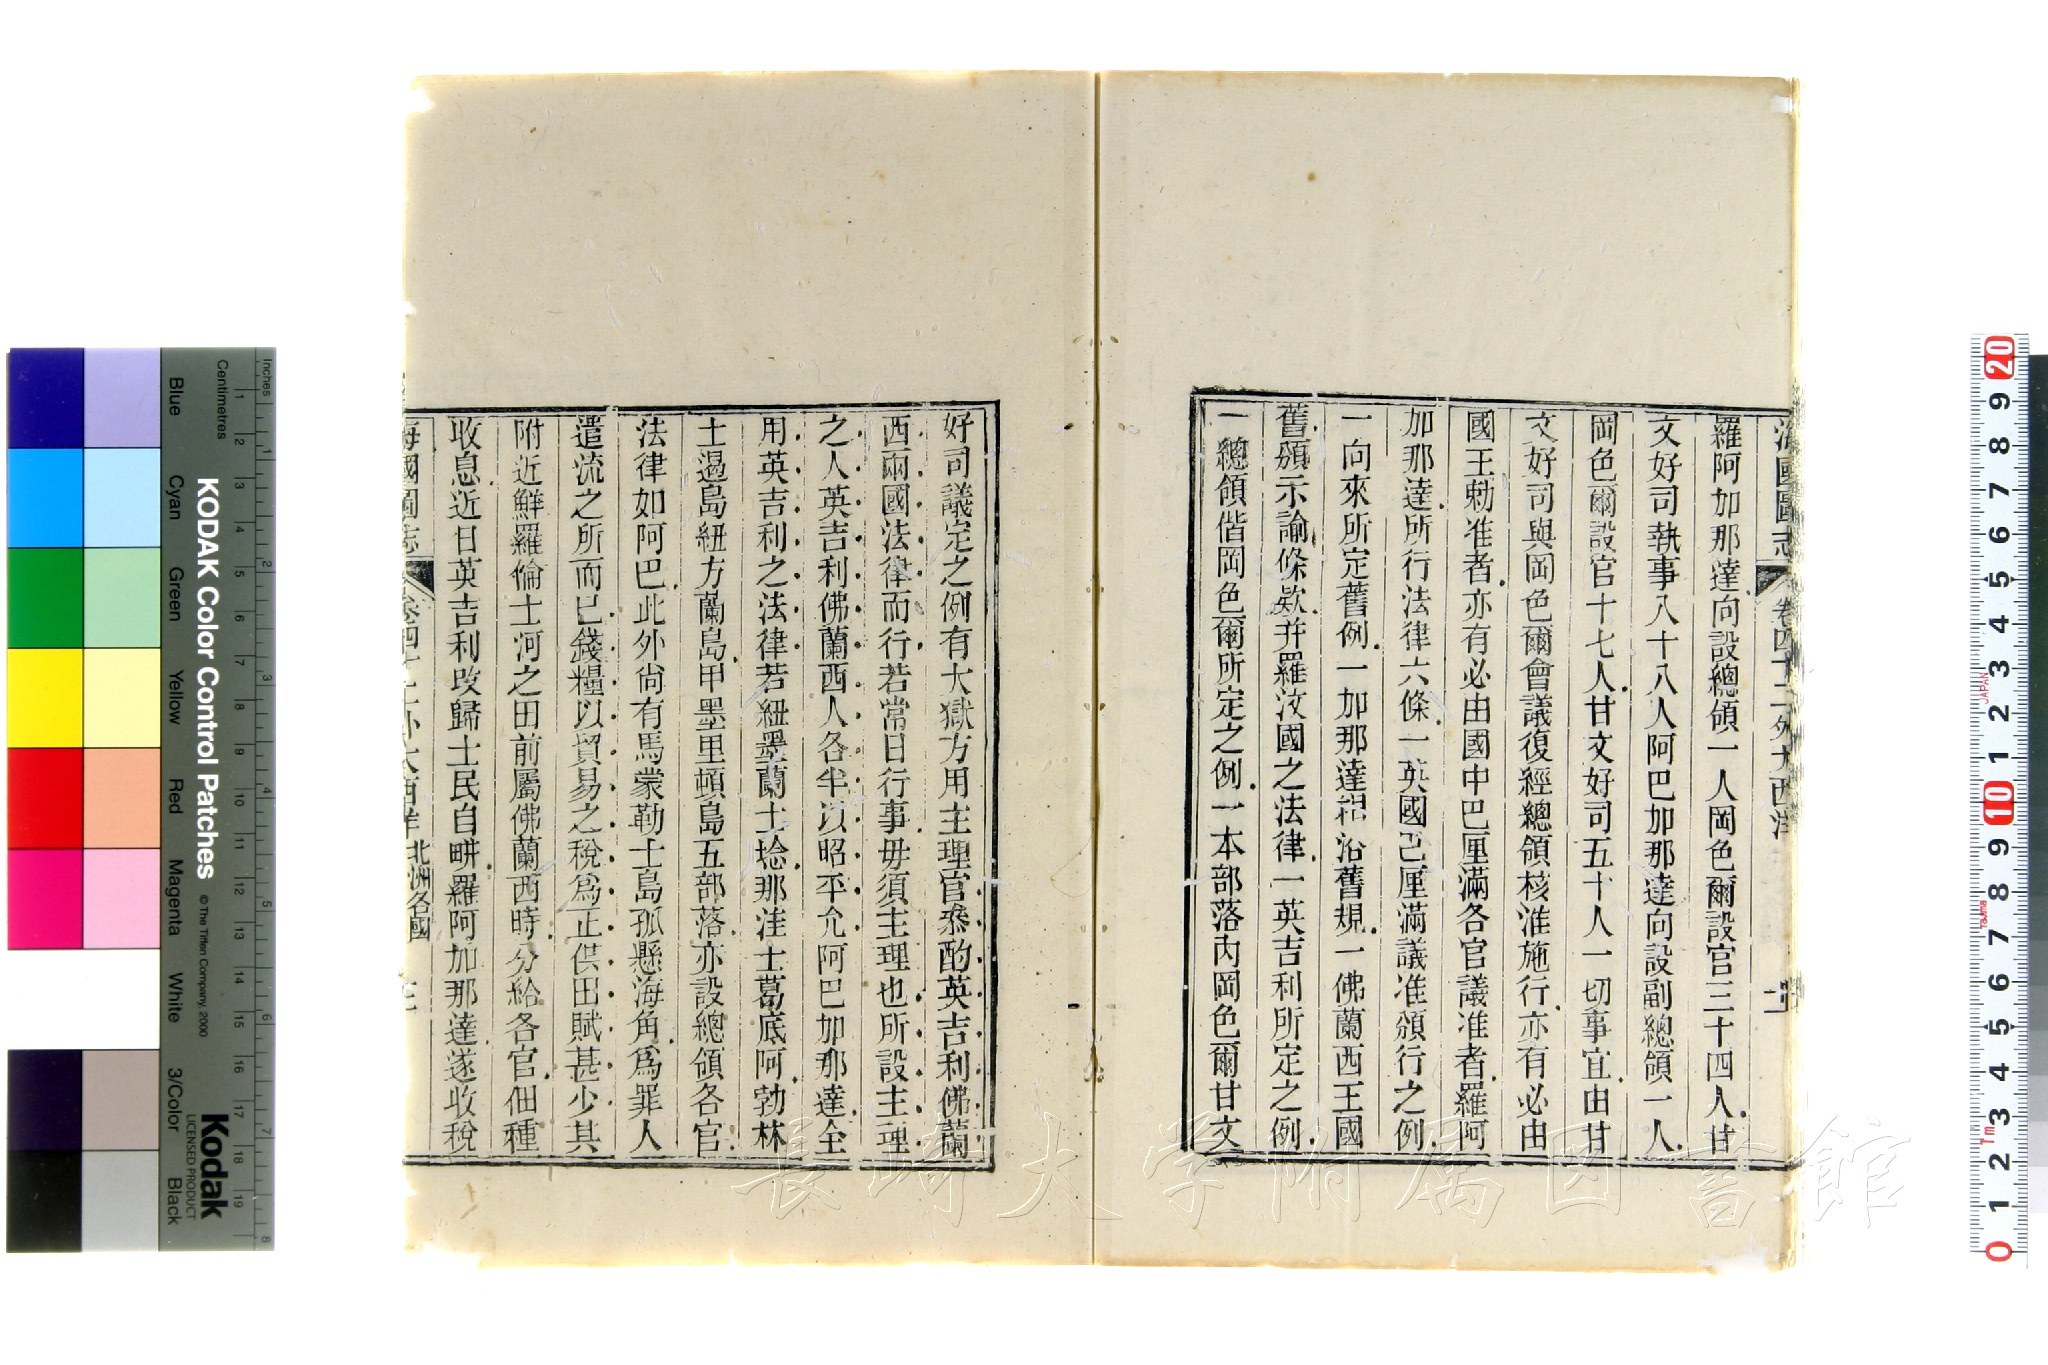 海國圖志 卷四十二外大西洋
羅阿加那達向設總領一人岡色爾設官三十四人甘
文好司執事八十八人阿巴加那達向設副總領一人
岡色爾設官十七人甘文好司五十人一切事宜由甘
文好司與岡色爾會議復經總領核准施行亦有必由
國王勅准者亦有必由國中巴厘滿各官議准者羅阿
加那達所行法律六條一英國巴厘滿議准頒行之例
一向來所定舊例一加那達和沿舊規一佛蘭西王國
舊頒示諭條欵并羅汶國之法律一英吉利所定之例
一總領偕岡色爾所定之例一本部落內岡色爾甘文
好司議定之例有大獄方用主理官叅酌英吉利佛蘭
西兩國法律而行若常日行事毋須主理也所設主理
之人英吉利佛蘭西人各半以昭平允阿巴加那達全
用英吉利之法律若紐墨蘭士埝那洼士葛底阿勃林
士過島紐方蘭島甲墨里頓島五部落亦設總領各官
法律如阿巴此外尙有馬蒙勒士島孤懸海角爲罪人
遣流之所而已錢糧以貿易之稅爲正供田賦甚少其
附近鮮羅倫士河之田前屬佛蘭西時分給各官佃種
收息近日英吉利改歸土民自畊羅阿加那達遂收稅
海國圖志 卷四十二外大西洋 北洲各國
KODAK Color Control Patches
© The Tiffen Company, 2000
Kodak
LICENSED PRODUCT
Inches
Centimetres
Blue
Cyan
Green
Yellow
Red
Magenta
White
3/Color
Black
長崎大学附属図書館
JAPAN